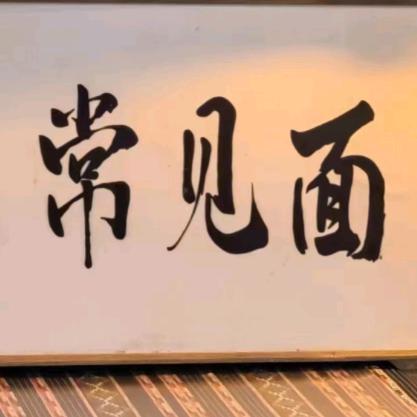 常见面